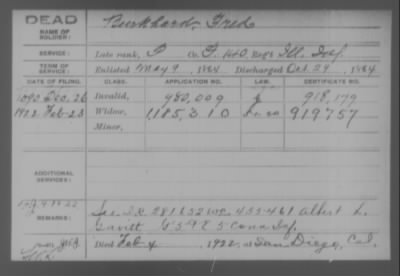 DEAD
NAME OF SOLDIER:
Burkhard, Fred
SERVICE:
Late rank, P Co. F. 140, Reg't Ill. Inf.
TERM OF SERVICE:
Enlisted May 9, 1864 Discharged Oct. 29, 1864
DATE OF FILING. CLASS. APPLICATION NO. LAW. CERTIFICATE NO.
1890 Dec. 26 Invalid, 980,009 918,179
1922 Feb-23 Widow, 1,185,310 919757
Minor,
ADDITIONAL SERVICES:
REMARKS:
Albert L.
Conn Inf.
Died Feb 4, 1922, at San Diego, Cal.